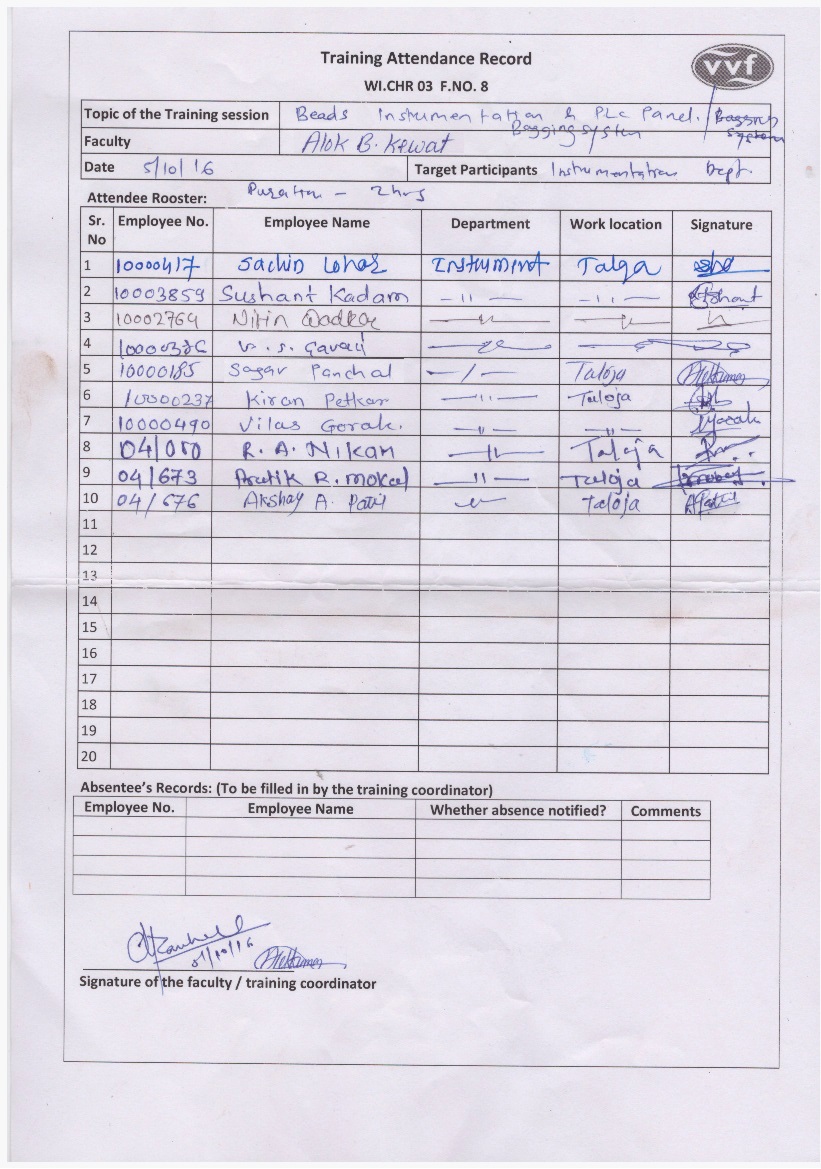 Training Attendance Record
WI.CHR 03 F.NO. 8
vvf
Topic of the Training session Beads Instrumentation & PLC Panel. / Bagging System
Bagging system
Faculty Alok B. Kewat
Date 5/10/16 Target Participants Instrumentation Dept.
Attendee Rooster: Duration - 2 hrs
Sr. No Employee No. Employee Name Department Work location Signature
1 10000417 Sachin Lohar Instrument Taloja
2 10003859 Sushant Kadam -"- -"-
3 10002769 Nitin -"- -"-
4 V. S. Gavali
5 10000185 Sagar Panchal -/- Taloja
6 10000237 Kiran Petkar -"- Taloja
7 10000490 Vilas Gorak. -"- -"-
8 04/050 R. A. NIKAM -"- Taloja
9 04/673 Pratik R. mokal -"- Taloja
10 04/676 Akshay A. Patil -"- Taloja APatil
11
12
13
14
15
16
17
18
19
20
Absentee's Records: (To be filled in by the training coordinator)
Employee No. Employee Name Whether absence notified? Comments
5/10/16
Signature of the faculty / training coordinator